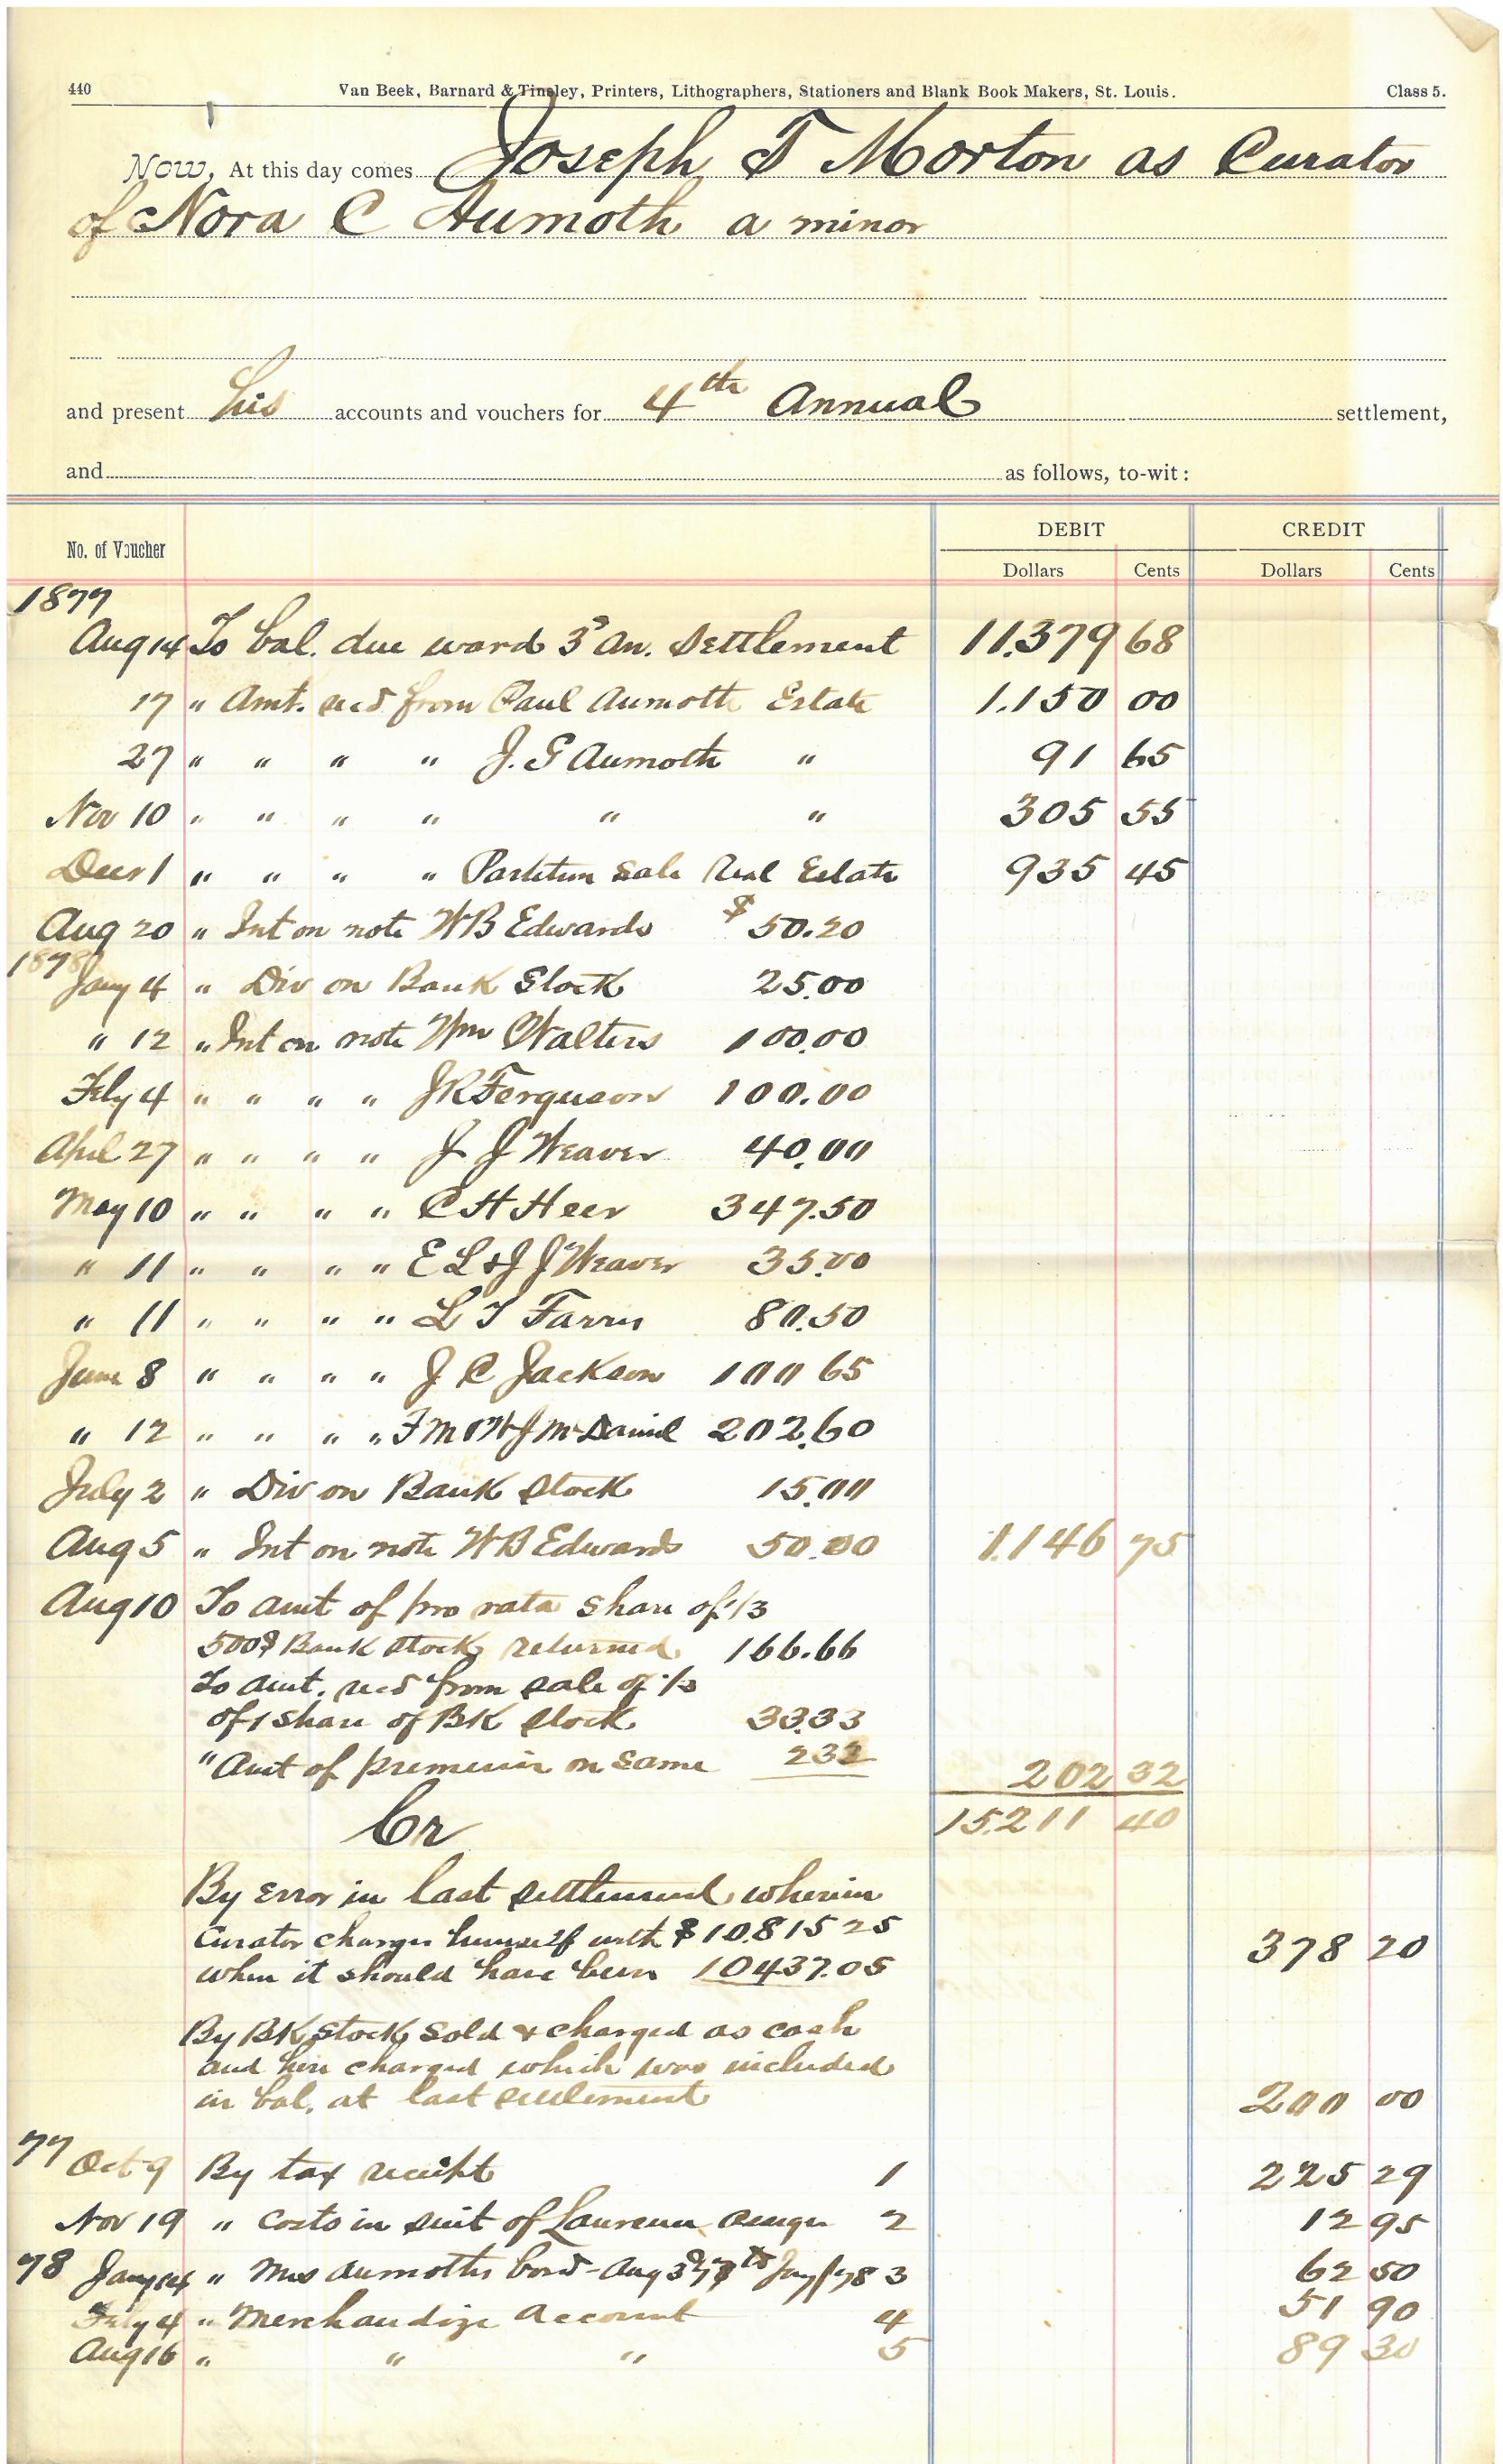 440 Van Beek, Barnard & Tinsley, Printers, Lithographers, Stationers and Blank Book Makers, St. Louis. Class 5.
Now, At this day comes Joseph T Morton as Curator
of Nora C Aumoth a minor
and present his accounts and vouchers for 4th Annual settlement,
and as follows, to-wit:
No. of Voucher DEBIT CREDIT
Dollars Cents Dollars Cents
1877
Aug 14 To bal. due ward 3d An. Settlement 11.379 68
17 " Amt. recd from Paul Aumoth Estate 1.150 00
27 " " " " J. G Aumoth " 91 65
Nov 10 " " " " " " 305 55
Decr 1 " " " " Partition Sale Real Estate 935 45
Aug 20 " Int on note W B Edwards $50.20
1878
Jany 4 " Div on Bank Stock 25.00
" 12 " Int on note Wm Walters 100.00
Feby 4 " " " " J R Ferguson 100.00
April 27 " " " " J J Weaver 40.00
May 10 " " " " C H Heer 347.50
" 11 " " " " E L & J J Weaver 35.00
" 11 " " " " L T Farris 80.50
June 8 " " " " J C Jackson 100 65
" 12 " " " " F M & W J McDaniel 202.60
July 2 " Div on Bank Stock 15.00
Aug 5 " Int on note W B Edwards 50.00 1.146 75
Aug 10 To amt of pro rata share of 1/3
500$ Bank Stock returned 166.66
To amt. recd from sale of 1/3
of 1 share of BK Stock 33.33
" Amt of premium on same 2 32 202 32
15.211 40
Cr
By Error in last settlement wherein
Curator charges himself with $10.815 25
when it should have been 10437.05 378 20
By BK Stock sold & charged as cash
and here charged which was included
in bal. at last settlement 200 00
77
Oct 9 By tax receipt 1 225 29
Nov 19 " Costs in suit of 2 12 95
78 Jany 14 " Mrs Aumoths bord - Aug 3d 77 to Jany 1/78 3 62 50
Feby 4 " Merchandize Account 4 51 90
Aug 16 " " " 5 89 30